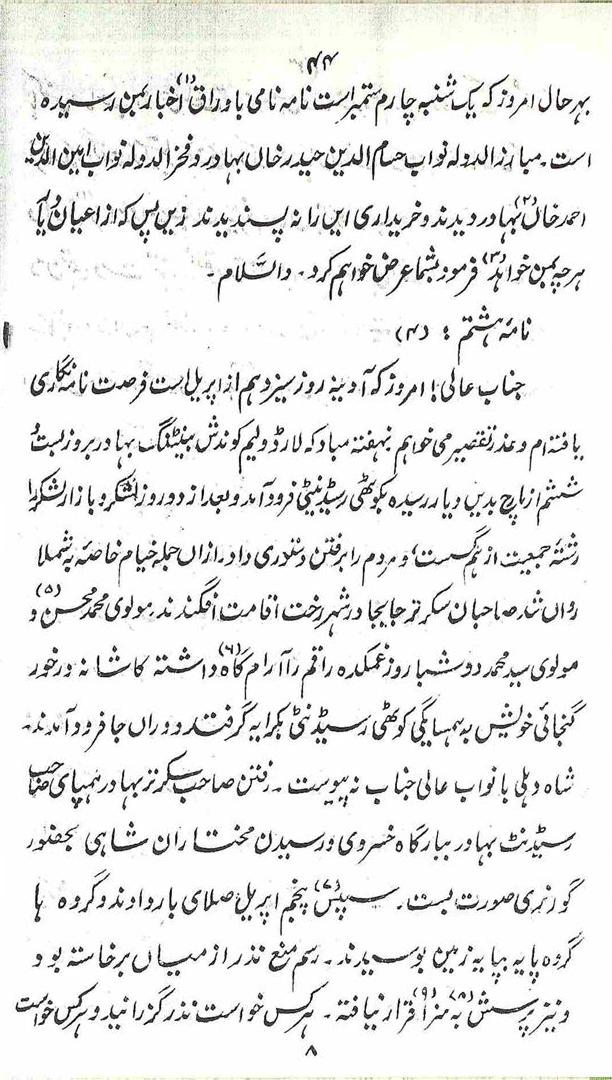 ۴۴
بہر حال امروز کہ یک شنبہ چارم ستمبر است نامہ نامی با وراق (۱) اخبار بمن رسیدہ
است۔ مبارز الدولہ نواب حسام الدین حیدر خاں بہادر و فخر الدولہ نواب امین الدین
احمد خاں (۲) بہادر دیدند و خریداری ایں را نہ پسندیدند زیں پس کہ از اعیان دہلی
ہر چہ بمن خواہد (۳) فرمود بشما عرض خواہم کرد۔ والسّلام۔
نامۂ ہشتم : (۴)
جناب عالی! امروز کہ آدینہ روز سیزدہم از اپریل است فرصت نامہ نگاری
یافتہ ام و عذر تقصیر می خواہم نہفتہ مباد کہ لارڈ ولیم کوندش بنیٹنگ بہادر بروز بست و
ششم از مارچ بدیں دیار رسیدہ بکوٹھی رسیڈنیٹی فرود آمد و بعد از دو روز لشکر و بازار لشکر را
رشتۂ جمعیت از ہم گسست و مردم را برفتن دستوری داد۔ ازاں جملہ خیام خاصہ بہ شملا
رواں شد صاحبان سکرتر جابجا در شہر رخت اقامت افگندند۔ مولوی محمد محسن (۵) و
مولوی سید محمد دو شبا روز غمکدہ راقم را آرام گاہ (۶) داشتہ کاشانہ در خور
گنجائی خویش بہ ہمسایگی کوٹھی رسیڈنٹی بکرایہ گرفتند و دراں جا فرود آمدند۔
شاہ دہلی با نواب عالی جناب نہ پیوست۔ رفتن صاحب سکرتر بہادر بہمپای صاحب
رسیڈنٹ بہادر ببارگاہ خسروی و رسیدن مختاران شاہی بحضور
گورنری صورت بست۔ سپس (۷) پنجم اپریل صلای بار دادند و گروہ ہا
گروہ پایہ بپایہ زمین بوسیدند۔ رسم منع نذر از میاں برخاستہ بود
و نیز پرسش (۸) بہ سزا (۹) قرار نیافتہ۔ ہر کس خواست نذر گزرانید و ہر کس خواست
۸